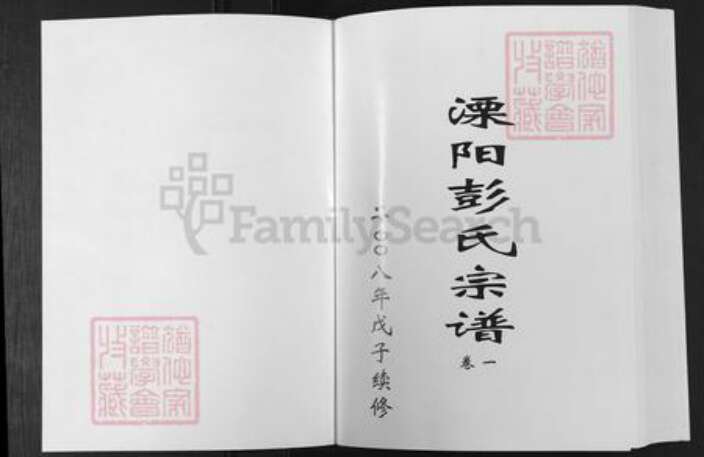 溧阳彭氏宗谱
卷一
二〇〇八年戊子续修
FamilySearch